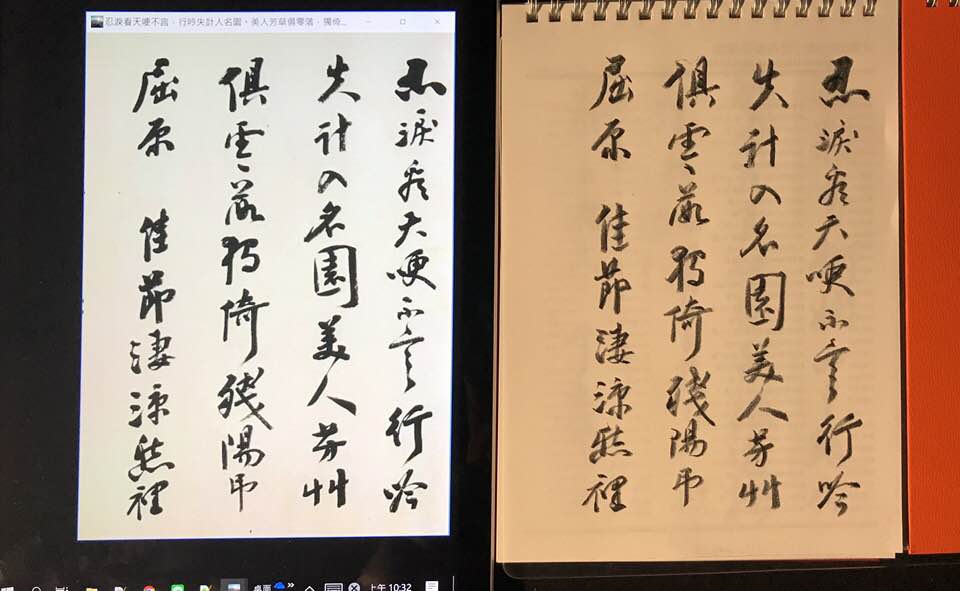 忍淚看天哽不言，行吟失計人名園。美人芳草俱零落，獨倚...
忍淚看天哽不言行吟
失計入名園美人芳艸
俱零落獨倚殘陽弔
屈原 佳節淒涼愁裡
桌面 上午 10:32
忍淚看天哽不言行吟
失計入名園美人芳艸
俱零落獨倚殘陽弔
屈原 佳節淒涼愁裡